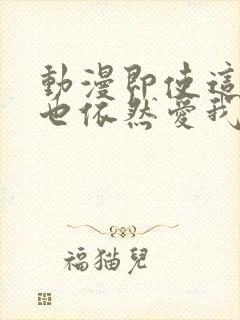 動漫即使這
也依然愛我
福猫兒